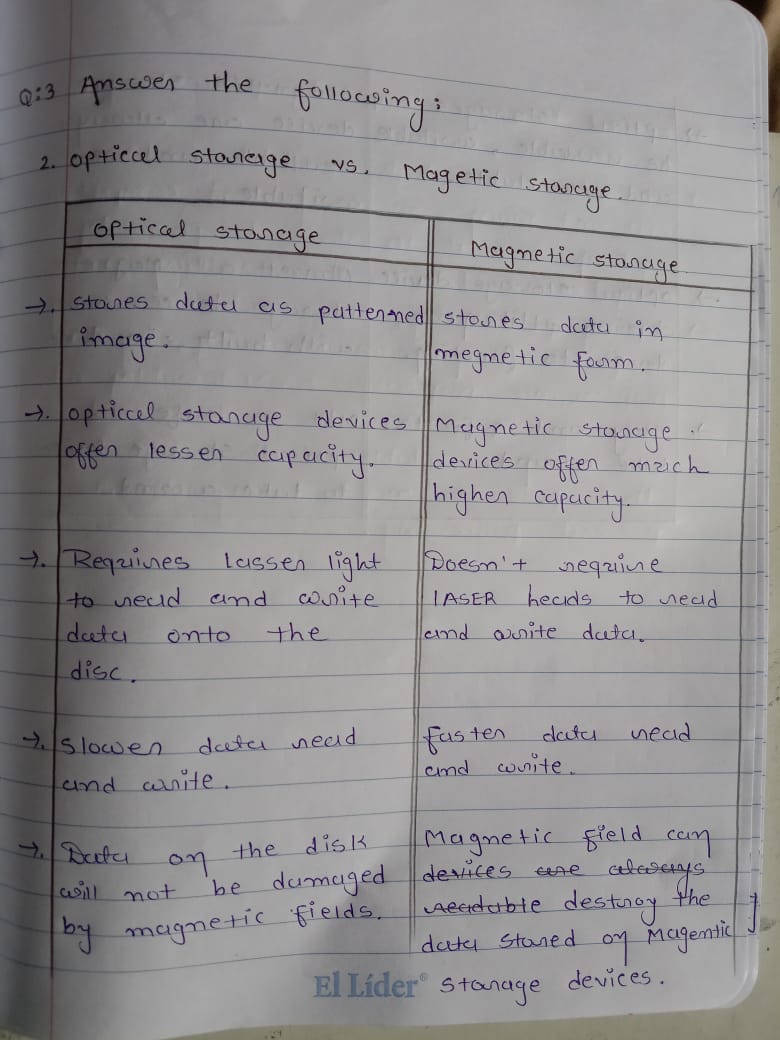 Q:3 Answer the following:
2. optical storage vs. Magetic storage.
optical storage
Magnetic storage
→. stores data as patterned
image.
stores data in
megnetic form.
→. optical storage devices
offer lesser capacity.
Magnetic storage
devices offer much
higher capacity.
→. Requires lasser light
to read and write
data onto the
disc.
Doesn't require
lASER heads to read
and write data.
→. slower data read
and write.
faster data read
and write.
→. Data on the disk
will not be damaged
by magnetic fields.
Magnetic field can
devices are always
readable destroy the
data stored on Magentic
storage devices.
El Líder®